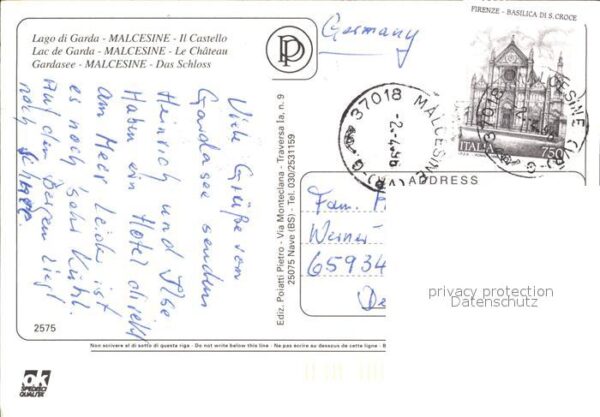 Lago di Garda - MALCESINE - Il Castello
Lac de Garda - MALCESINE - Le Château
Gardasee - MALCESINE - Das Schloss
Germany
FIRENZE - BASILICA DI S. CROCE
ITALIA 750
37018 MALCESINE (VR)
-2.-4.96
Viele Grüße vom
Gardasee senden
Heinrich und Ilse
Haben ein Hotel direkt
am Meer Leider ist
es noch sehr kühl.
Auf den Bergen liegt
noch Schnee.
Ediz. Poiatti Pietro - Via Monteclana - Traversa Ia, n. 9
25075 Nave (BS) - Tel. 030/2531159
ADDRESS
Fam.
Werner
65934
privacy protection
Datenschutz
2575
Non scrivere al di sotto di questa riga - Do not write below this line - Ne pas écrire au dessous de cette ligne
ok
SPEDIRCI
QUALITÀ